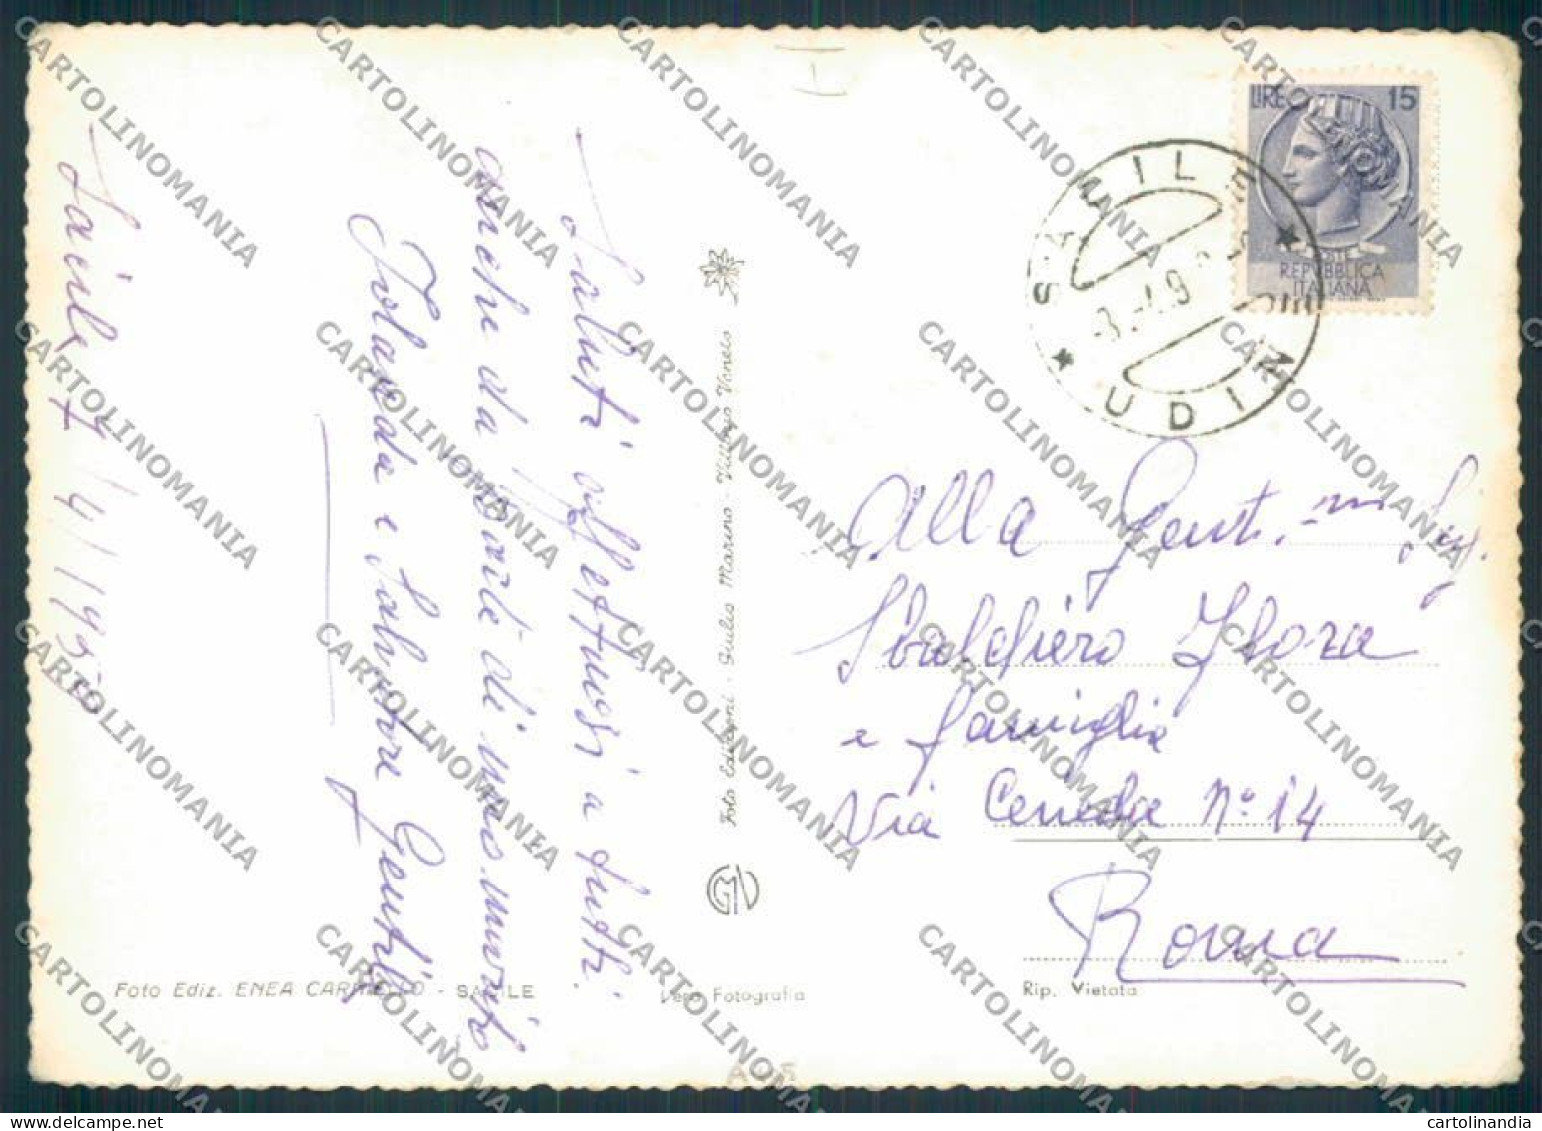 Sacile 7/4/195
Saluti affettuosi a tutti
anche da parte di mio marito
Jolanda e Salvatore Gentile
Foto Ediz. ENEA - SACILE
Vera Fotografia
Foto Edizioni - Giulio Marino - Vittorio Veneto
GMV
LIRE 15
POSTE
REPUBBLICA
ITALIANA
SACILE
UDINE
Alla Gent.ma Sig.
Flora
e famiglia
Via Ceneda N° 14
Roma
Rip. Vietata
CARTOLINOMANIA
cartolinandia